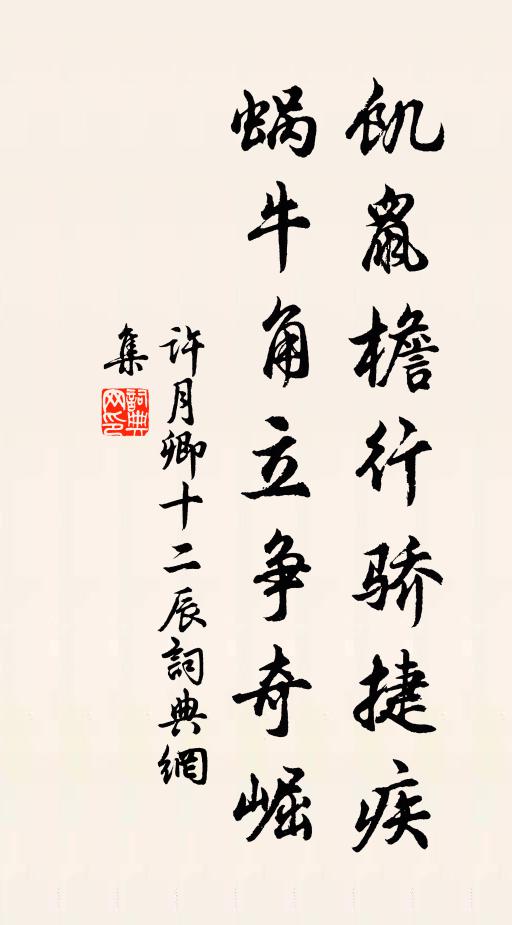 飢鼠檐行骄捷疾
蜗牛角立争奇崛
许月卿十二辰詞典網
集
詞典网印